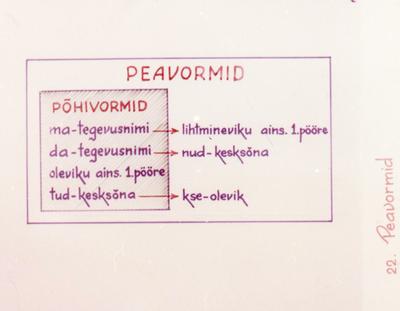 PEAVORMID
PÕHIVORMID
ma-tegevusnimi → lihtmineviku ains. 1. pööre
da-tegevusnimi → nud-kesksõna
oleviku ains. 1. pööre
tud-kesksõna → kse-olevik
22. Peavormid